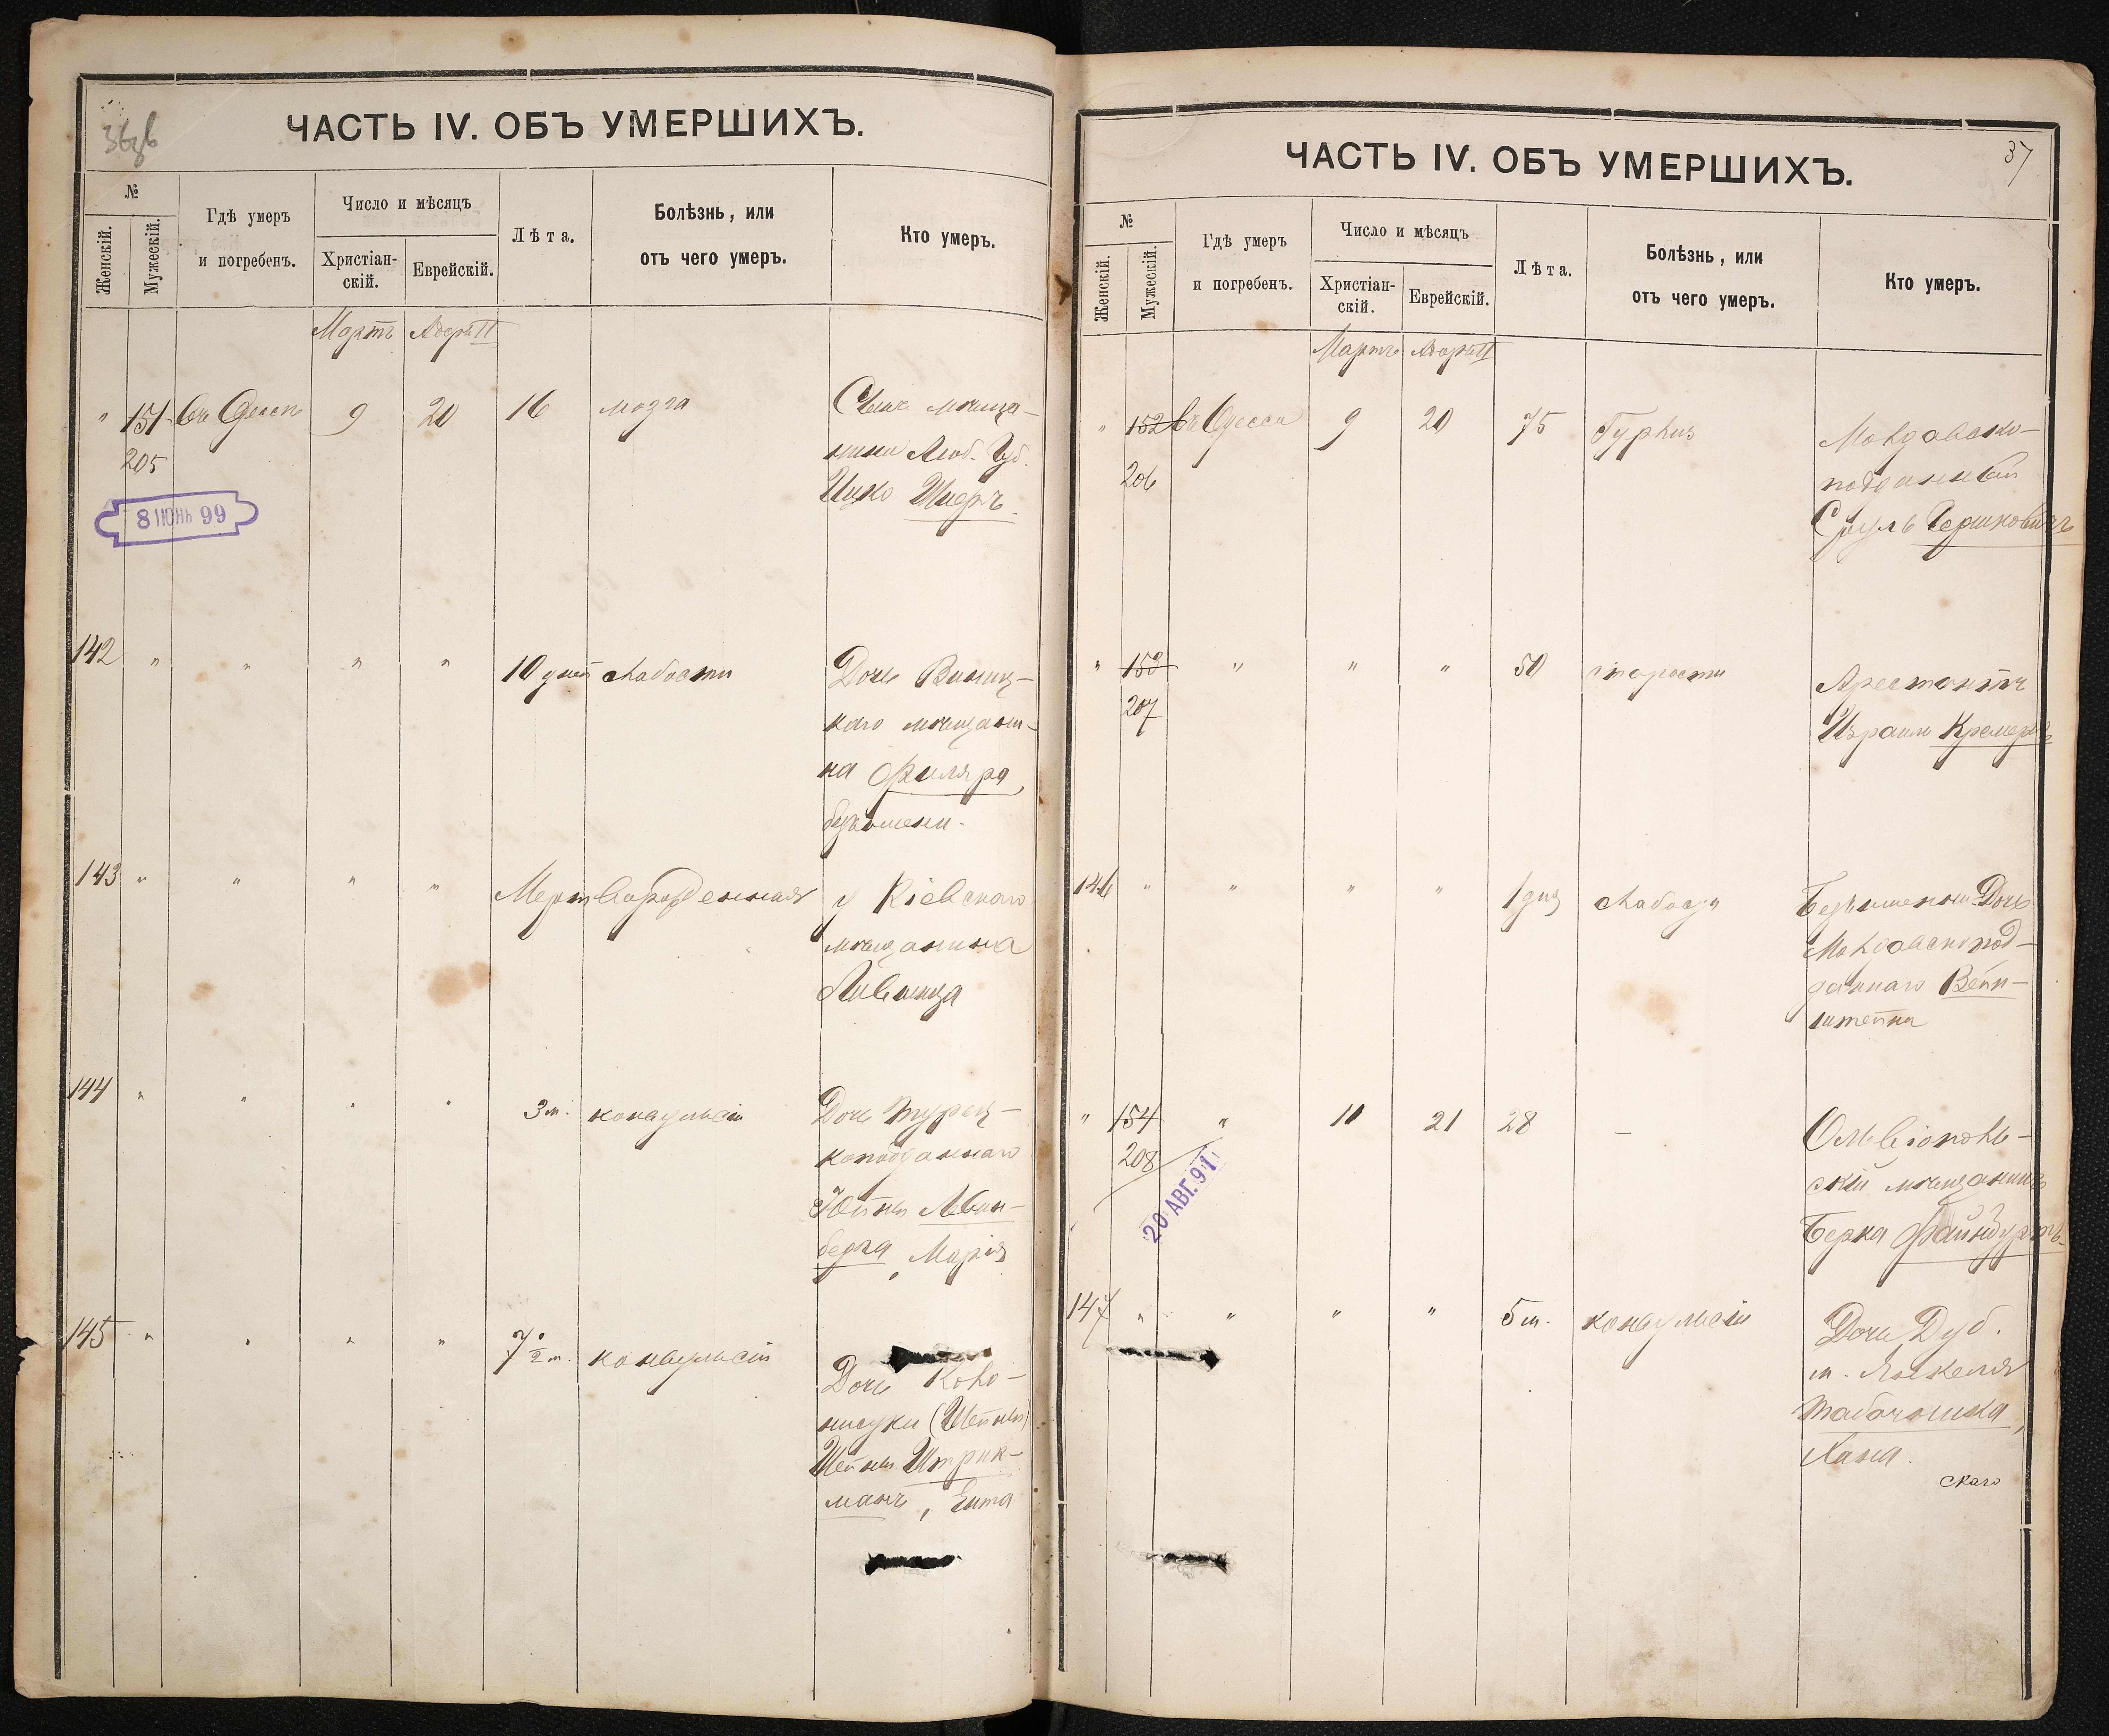 ЧАСТЬ IV. ОБЪ УМЕРШИХЪ.
№
Женскій.
Мужескій.
Гдѣ умеръ
и погребенъ.
Число и мѣсяцъ
Христіан-
скій.
Еврейскій.
Лѣта.
Болѣзнь, или
отъ чего умеръ.
Кто умеръ.
Мартъ Адаръ II
" 151 въ Одессѣ 9 20 16 мозга Сынъ мѣща-
205
нина
Ицко Шнеръ.
8 ІЮНЬ 99
142 " " " " 10 дней слабости Дочь Винниц-
каго мѣщани-
на Филяра,
безъ имени.
143 " " " " Мертворожденная у Кіевскаго
мѣщанина
Лившица
144 " " " " 3 м. конвульсіи Дочь Турец-
коподданнаго
Левин-
берга, Марія
145 " " " " 7 1/2 м. конвульсіи
Дочь Коло-
нистки (Шейны)
Шейны Штрик-
манъ, Ента
ЧАСТЬ IV. ОБЪ УМЕРШИХЪ.
37
№
Женскій.
Мужескій.
Гдѣ умеръ
и погребенъ.
Число и мѣсяцъ
Христіан-
скій.
Еврейскій.
Лѣта.
Болѣзнь, или
отъ чего умеръ.
Кто умеръ.
Мартъ Адаръ II
" 152 въ Одессѣ 9 20 75 Молдавско-
206
подданный
Сруль Гершковичъ
" 153 " " " 50 старости Арестантъ
207
Израиль Кремеръ
146 " " " " 1 дня слабости Безъ имени Дочь
Молдавскопод-
даннаго Вейн-
штейна
" 154 " 10 21 28 — Ольвіополь-
208
скій мѣщанинъ
Берка
20 АВГ. 91
147 " " " " 5 м. конвульсіи Дочь Дуб.
м. Янкеля
Табачника,
Хана.
скаго